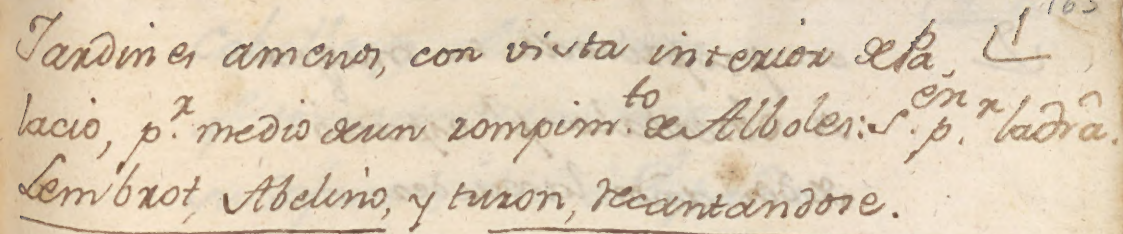 Jardines amenos, con vista interior de Pa,
lacio, p.r medio de un rompim.to de Alboles: S.en p.r la dra.
Lembrot, Abelino, y turon, recantandose.